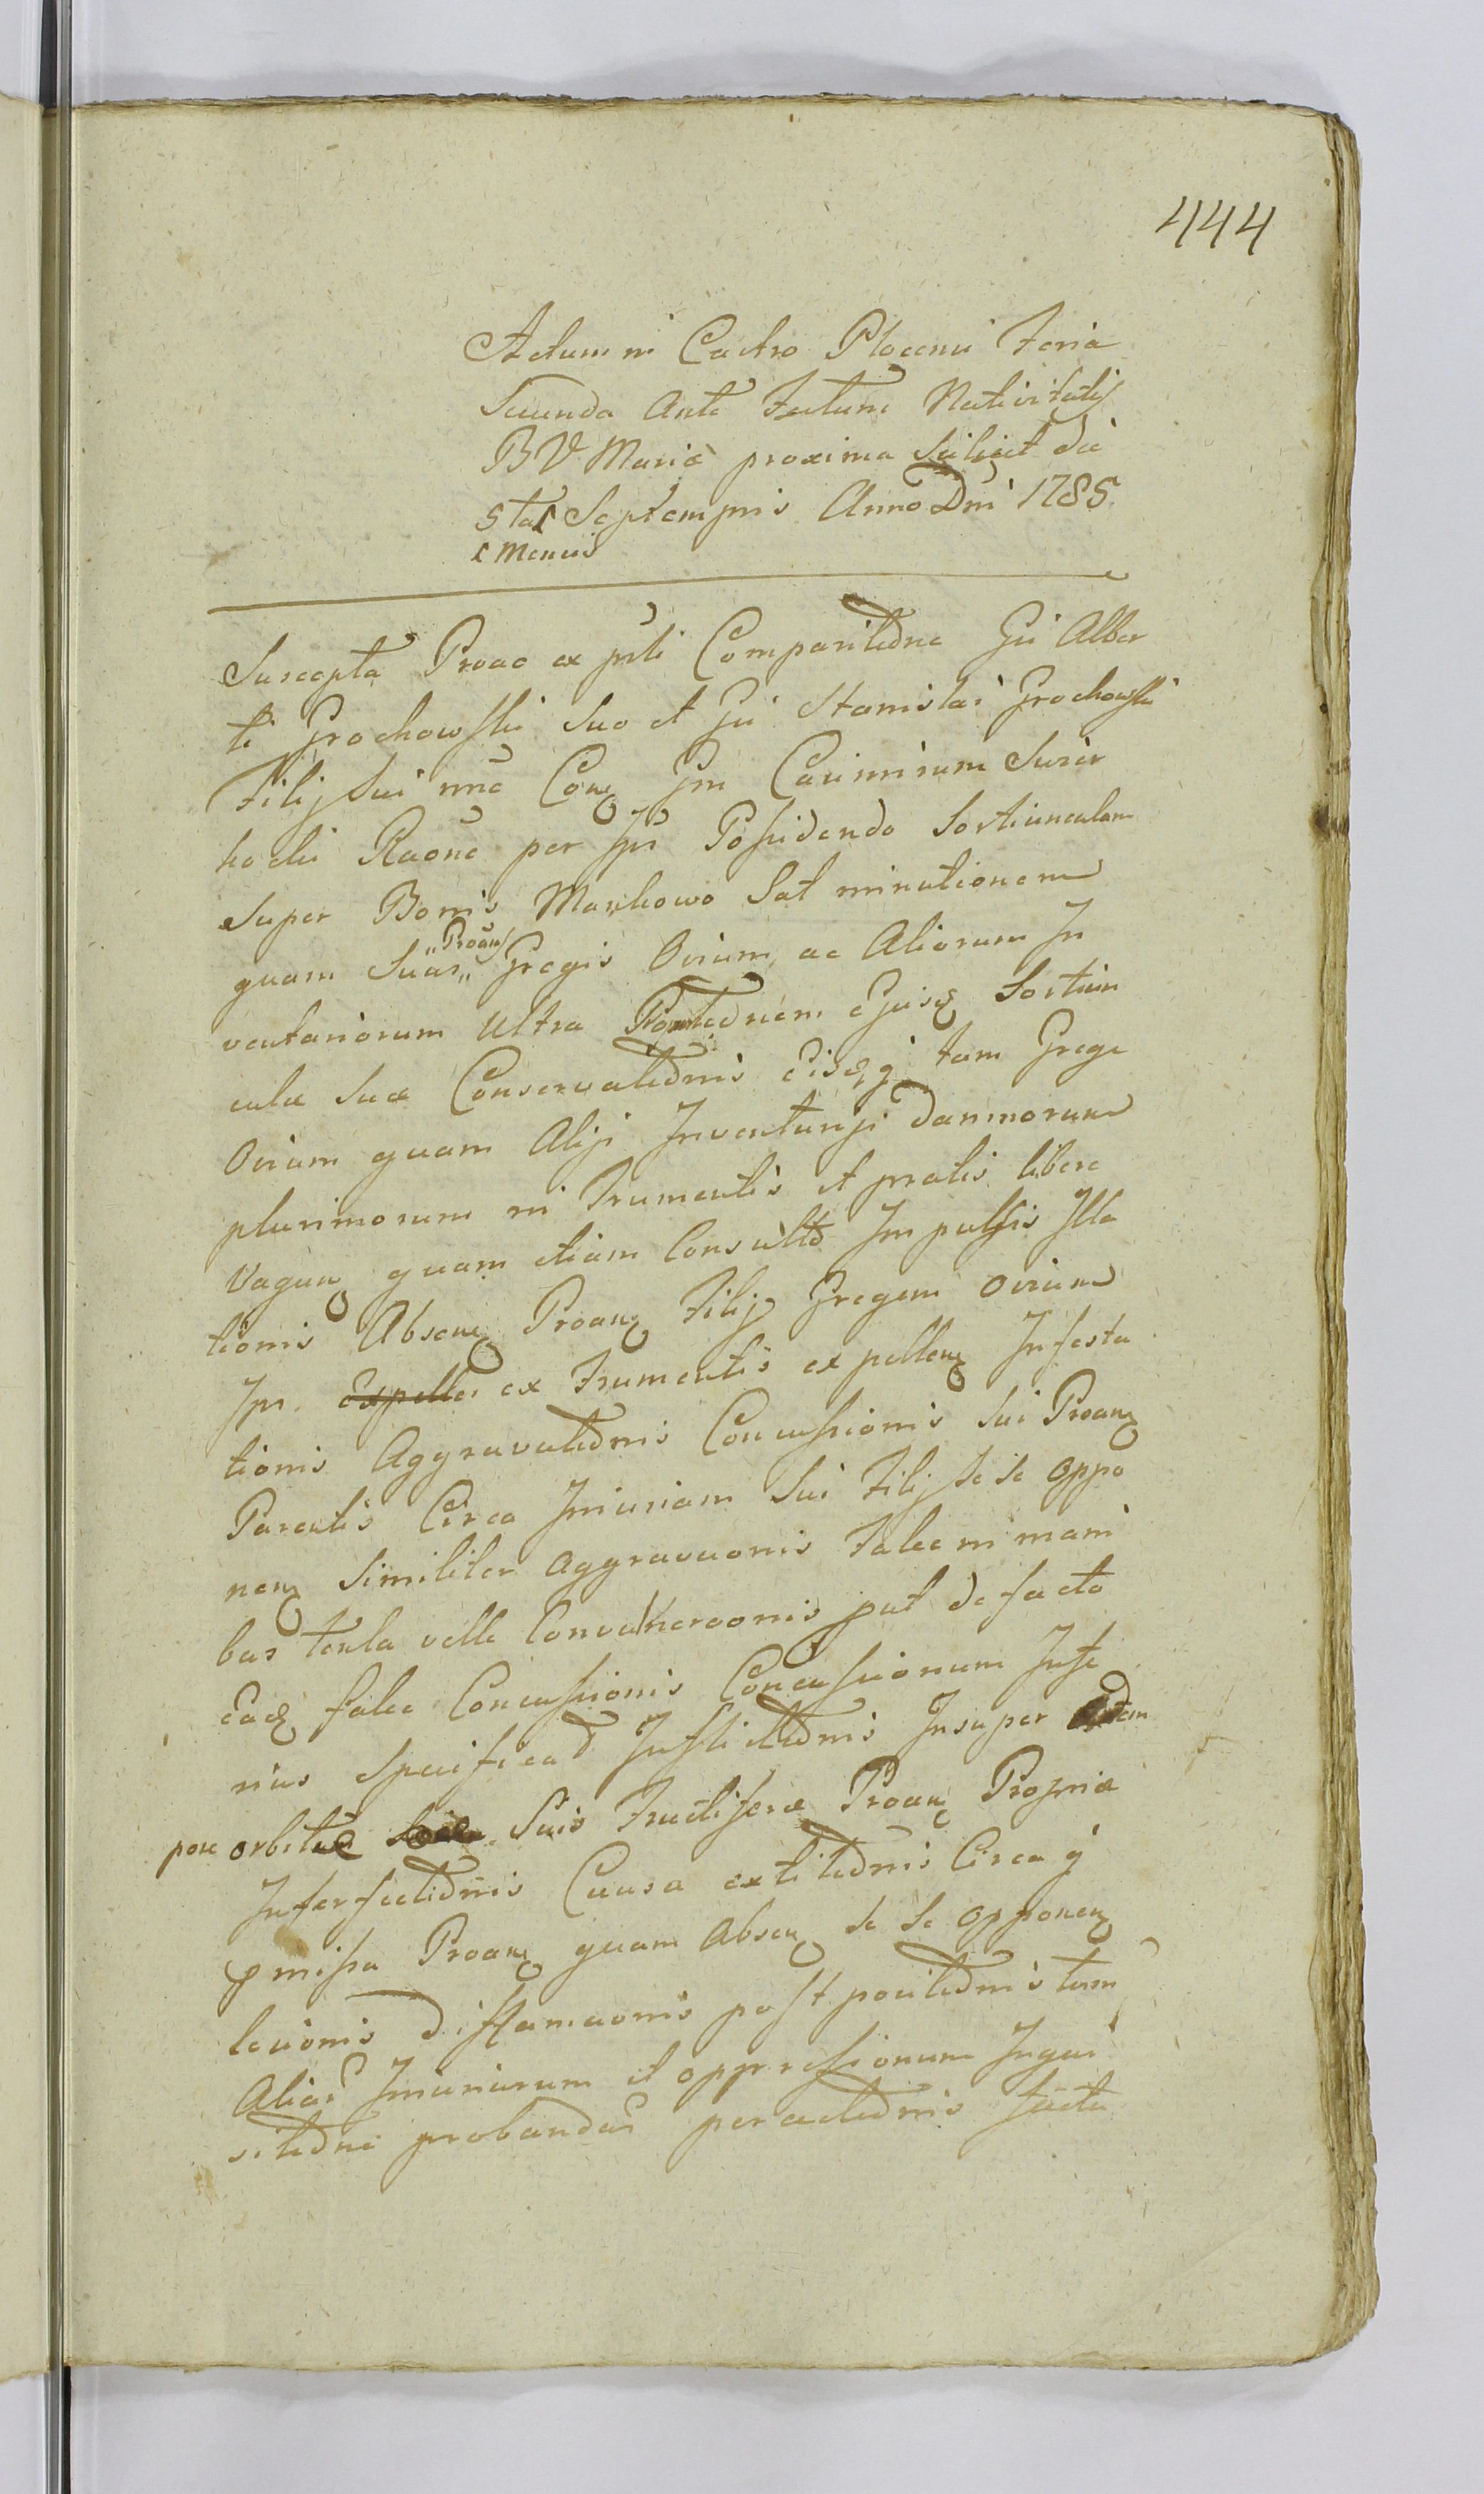 444
Actum in Castro Plocensi Feria
Secunda Ante Festum Nativitatis
BV Mariæ proxima Scilicet die
5ta Septempris Anno Dni 1785
Mensis
Suscepta Proae ex pnti Comparitione Gsi Alber
ti Grochowski Suo et Gsi Stanislai Grochowski
Filij Sui nne Con Gsm Casimirum Swier
kocki Raone per Ips Possidendo Sortiunculam
Super Bonis Markowo Sat minutionem
quam Suar Proan Gregis Ovium ac Aliorum In
ventariorum Ultra ejusq Sortiun
culæ Suæ Conservationis Eisq tam Grege
Ovium quam Alijs Inventarijs Damnorum
plurimorum in Frumentis et pratis libere
Vagan quam etiam Consulto Impulsis Illa
tionis Absen Proan Filij Gregem Ovium
Ips. Expelle ex Frumentis expellen Infesta
tionis Aggravationis Concussionis Sui Proan
Parentis Circa Iniuriam Sui Filij Se Se oppo
nen Similiter Aggravaonis Falce in mani
bus tenta velle Convulneraonis put de facto
Eadq falce Concussionis Concussionum Infe
rius Specificad Inflictionis Insuper
pore orbitæ Suis Fructiferæ Proan Propriæ
Interfectionis Causa extitionis Circa q
pmissa Proan quam Absen Se Se opponen
lecionis Diffamaonis postpositionis tum
Aliar Iniuriarum et oppressionum Inqui
sitione probandar peractionis facta